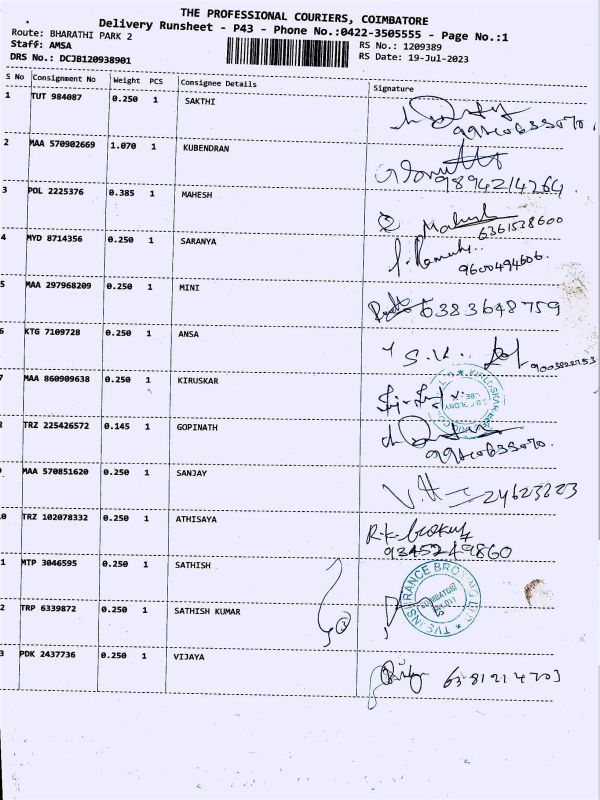 THE PROFESSIONAL COURIERS, COIMBATORE
Delivery Runsheet - P43 - Phone No.:0422-3505555 - Page No.:1
Route: BHARATHI PARK 2 RS No.: 1209389
Staff: AMSA RS Date: 19-Jul-2023
DRS No.: DCJB120938901
S No Consignment No Weight PCS Consignee Details Signature
1 TUT 984087 0.250 1 SAKTHI
2 MAA 570902669 1.070 1 KUBENDRAN
9894214264.
3 POL 2225376 0.385 1 MAHESH
Mahesh
6361538600
4 MYD 8714356 0.250 1 SARANYA
9600494606.
5 MAA 297968209 0.250 1 MINI
6383648759
6 KTG 7109728 0.250 1 ANSA
S.K..
7 MAA 860909638 0.250 1 KIRUSKAR
8 TRZ 225426572 0.145 1 GOPINATH
9 MAA 570851620 0.250 1 SANJAY
24623223
0 TRZ 102078332 0.250 1 ATHISAYA
R.K.
9345249860
1 MTP 3046595 0.250 1 SATHISH
TVS INSURANCE BROKING LTD
COIMBATORE
2 TRP 6339872 0.250 1 SATHISH KUMAR
3 PDK 2437736 0.250 1 VIJAYA